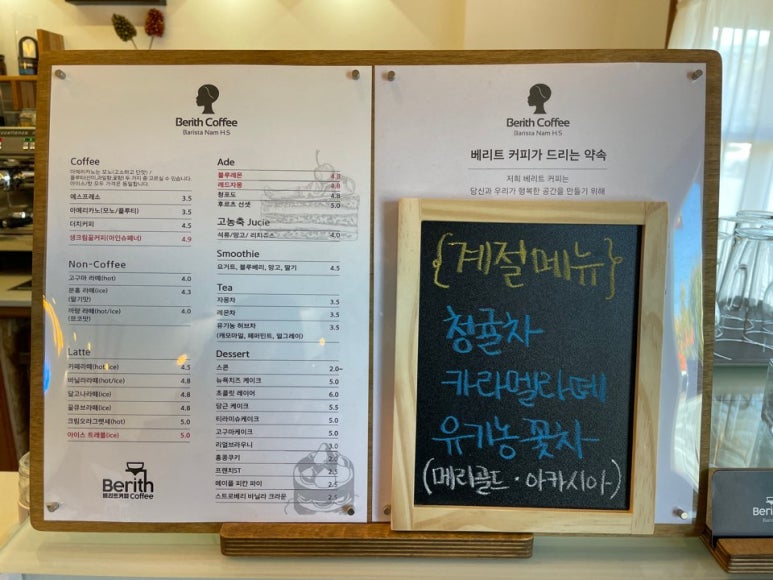 Berith Coffee
Barista Nam H.S
Coffee
아메리카노는 모노(고소하고 단맛) /
플루티(산미,과일향,꽃향) 두 가지 중 고르실 수 있습니다.
아이스/핫 모두 가격은 동일합니다.
에스프레소 3.5
아메리카노(모노/플루티) 3.5
더치커피 4.5
생크림꿀커피(아인슈페너) 4.9
Non-Coffee
고구마 라떼(hot) 4.0
분홍 라떼(ice) 4.3
(딸기맛)
파랑 라떼(hot/ice) 4.0
Latte
카페라떼(hot/ice) 4.5
바닐라라떼(hot/ice) 4.8
달고나라떼(ice) 4.8
얼큐브라떼(ice) 4.8
크림모라그랫세(hot) 5.0
아이스 트레블(ice) 5.0
Berith
베리트커피 Coffee
Ade
블루레몬 4.8
레드자몽 4.8
청포도 4.8
후르츠 선셋 5.0
고농축 Jucie
석류/망고/ 리치쥬스 4.0
Smoothie
요거트, 블루베리, 망고, 딸기 4.5
Tea
자몽차 3.5
레몬차 3.5
유기농 허브차 3.5
(캐모마일, 페퍼민트, 얼그레이)
Dessert
스콘 2.0~
뉴욕치즈 케이크 5.0
초콜릿 레이어 6.0
당근 케이크 5.5
티라미슈케이크 5.0
고구마케이크 5.0
리얼브라우니 3.0
홍콩쿠키
프렌치ST 2.5
메이플 피칸 파이 2.5
스트로베리 바닐라 크라운 2.5
Berith Coffee
Barista Nam H.S
베리트 커피가 드리는 약속
저희 베리트 커피는
당신과 우리가 행복한 공간을 만들기 위해
{계절메뉴}
청귤차
카라멜라떼
유기농꽃차
(메리골드·아카시아)